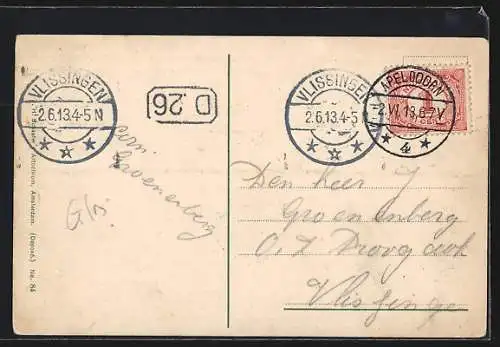 VLISSINGEN
2.6.13.4-5 N
D. 26
VLISSINGEN
2.6.13.4-5 N
APELDOORN
2.VI.13.6-7V
4
Groenenberg
G/B.
Amsterdam. (Deposé.) No. 84
Den Heer J
Groenenberg
O. I.
Vlissinge